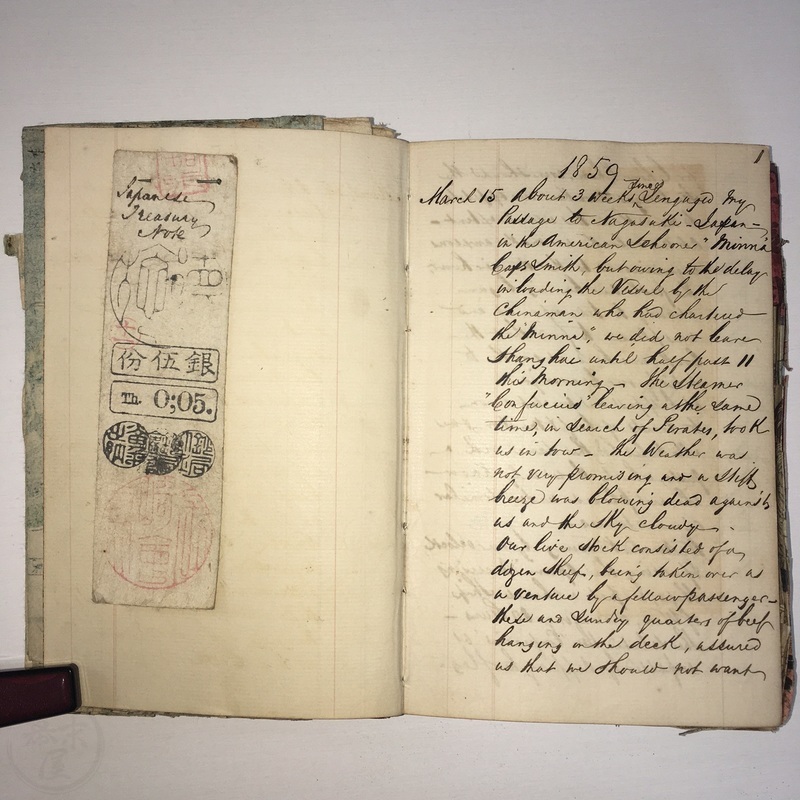 Japanese
Treasury
Note
銀伍份
Th. 0;05.
1
1859
March 15 About 3 weeks since I engaged my
Passage to Nagasaki - Japan -
in the American Schooner "Minna"
Capt Smith but owing to the delay
in loading the Vessel by the
Chinaman who had chartered
the "Minna", we did not leave
Shanghai until half past 11
this Morning - The Steamer
"Confucius" leaving at the same
time, in search of Pirates, took
us in tow - the Weather was
not very promising and a stiff
breeze was blowing dead against
us and the sky cloudy -
Our live stock consisted of a
dozen sheep, being taken over as
a venture by a fellow passenger -
these and sundry quarters of beef
hanging on the deck, assured
us that we should not want